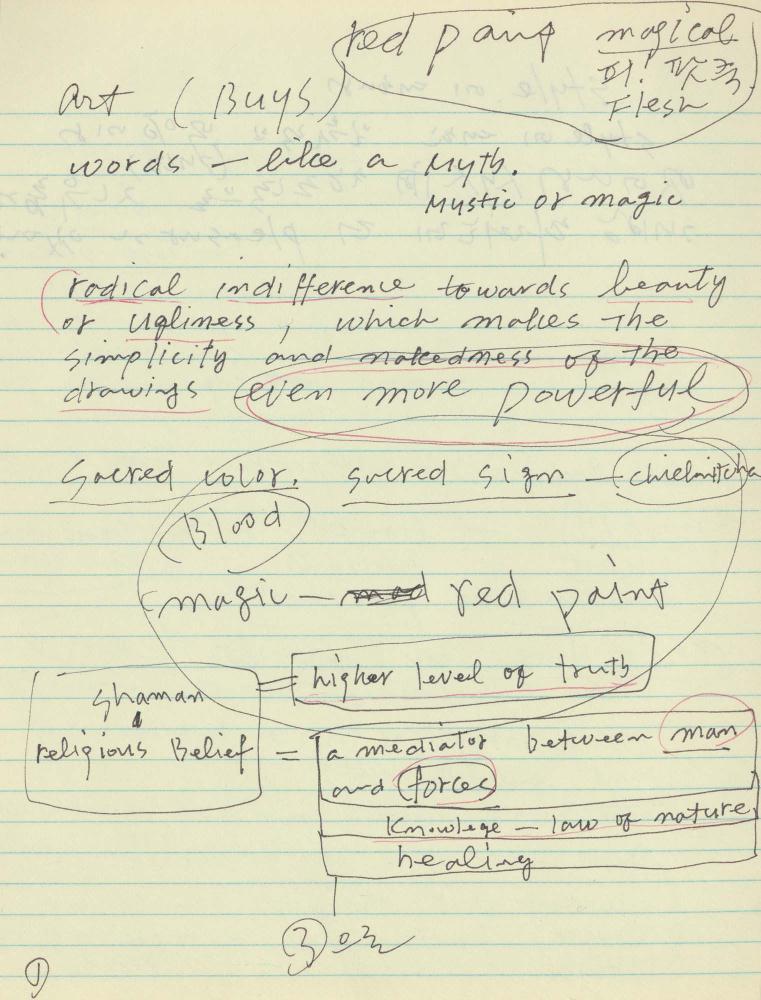 red paint magical
피! 팥죽
Flesh
art (Buys)
words - like a Myth.
Mystic or magic
radical indifference towards beauty
or Ugliness, which makes the
simplicity and nakedness of the
drawings even more powerful
Sacred color. sacred sign -
Blood
magic - red paint
higher level of truth
shaman
religious Belief = a mediator between man
and forces
Knowlege - law of nature
healing
③ 으로
①